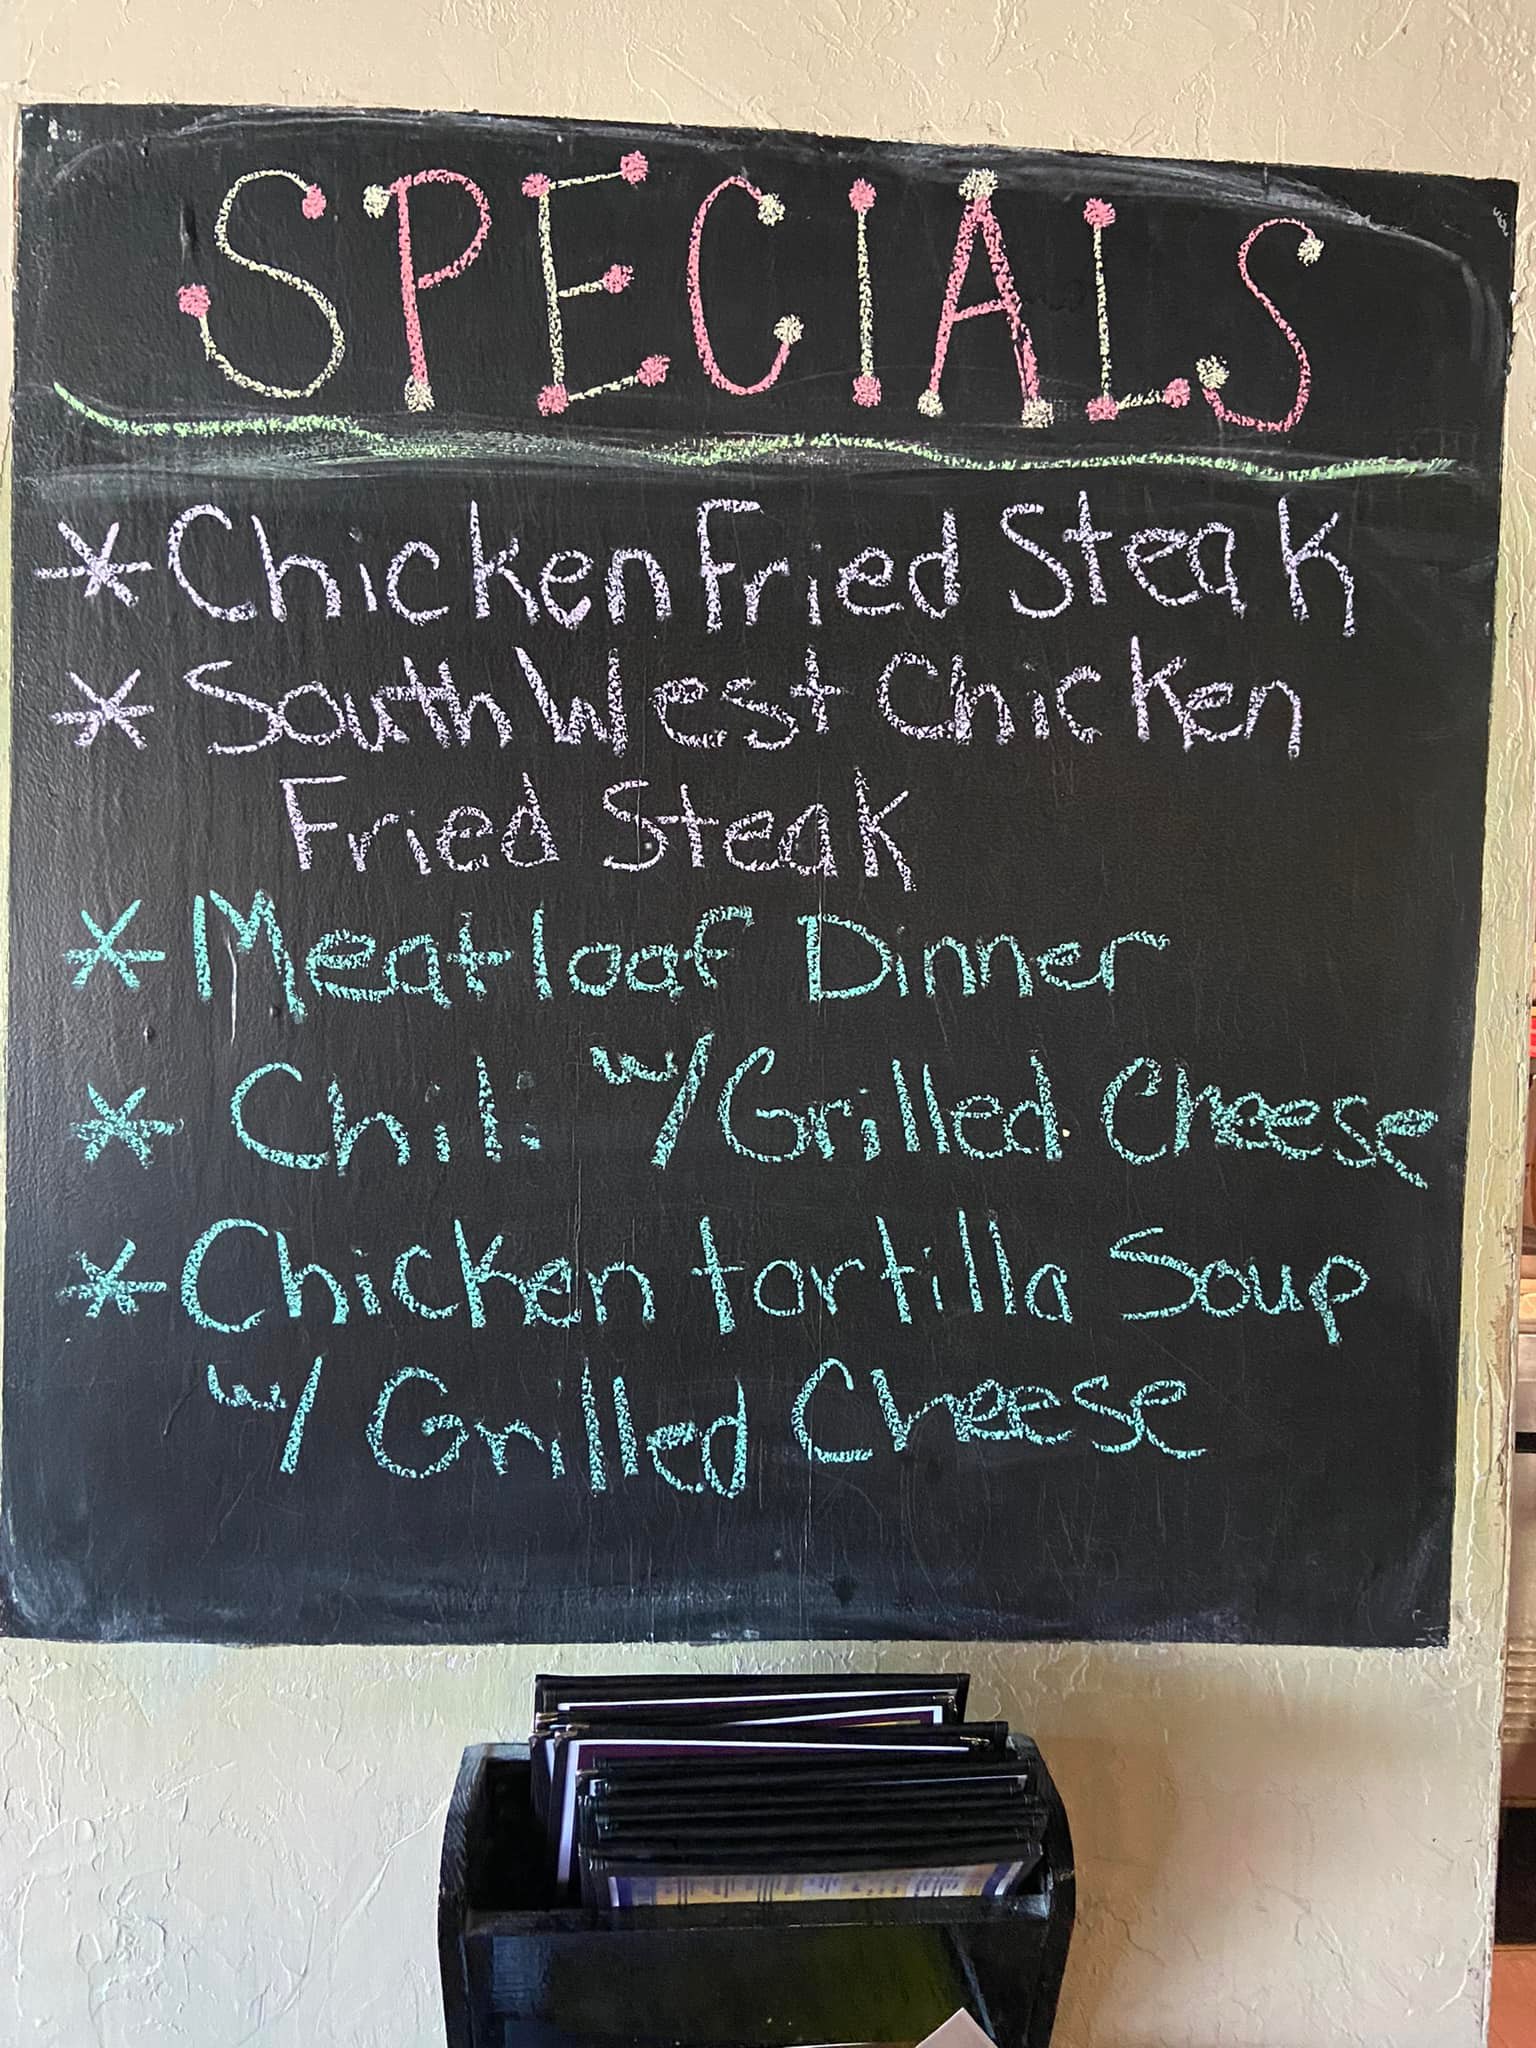 SPECIALS
* Chicken Fried Steak
* SouthWest Chicken
Fried Steak
* Meatloaf Dinner
* Chili w/ Grilled Cheese
* Chicken tortilla Soup
w/ Grilled Cheese